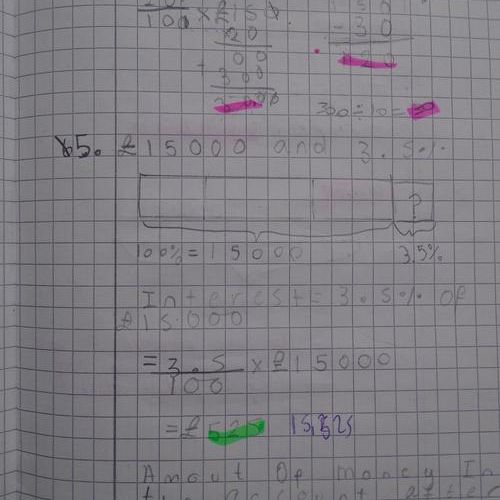 100 × £150
20
- 30
00
+ 300
300 ÷ 10 = 30
b5. £15000 and 3.5%
?
100% = 15000 3.5%
Interest = 3.5% of
£15000
= 3.5 × £15000
100
= £525 15,525
Amout Of money In